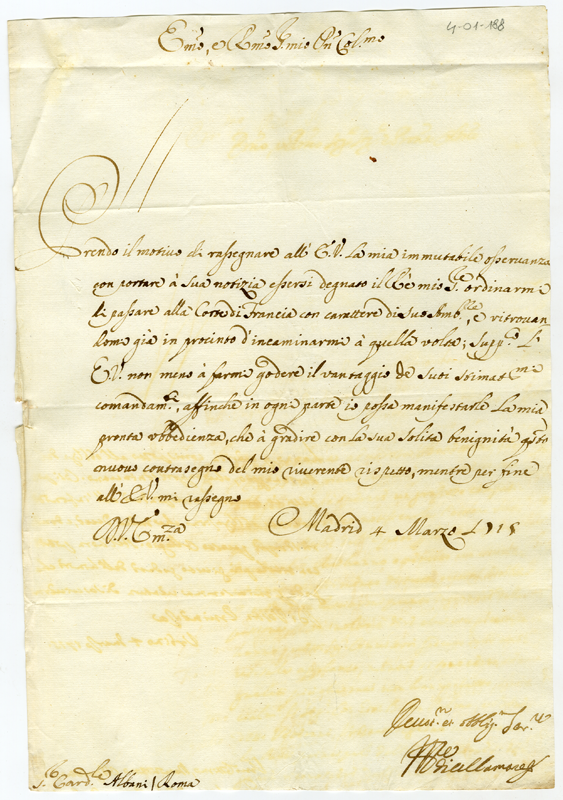 4-01-188
Em.º, e R.mo S. mio On. Col.mo
Prendo il motivo di rassegnare all' E.V. la mia immutabile osservanza
con portare à sua notizia essersi degnato il Rè mio S.re ordinarmi
di passare alla Corte di Francia con carattere di suo Amb.re, e ritrovan
dome già in procinto d'incaminarme à quella volta; supp.co l'
E.V. non meno à farme godere il vantaggio de suoi stimat.mi
comandam.ti, affinche in ogni parte io possa manifestarle la mia
pronta ubbedienza, che à gradire con la sua solita benignità q.sto
nuovo contrasegno del mio riverente rispetto, mentre per fine
all' E.V. mi rassegno
D.V. Em.za Madrid 4 Marzo 1715
Devu.mo et obblig.mo Ser.re
di Cellamare
S.r Card.le Albani / Roma